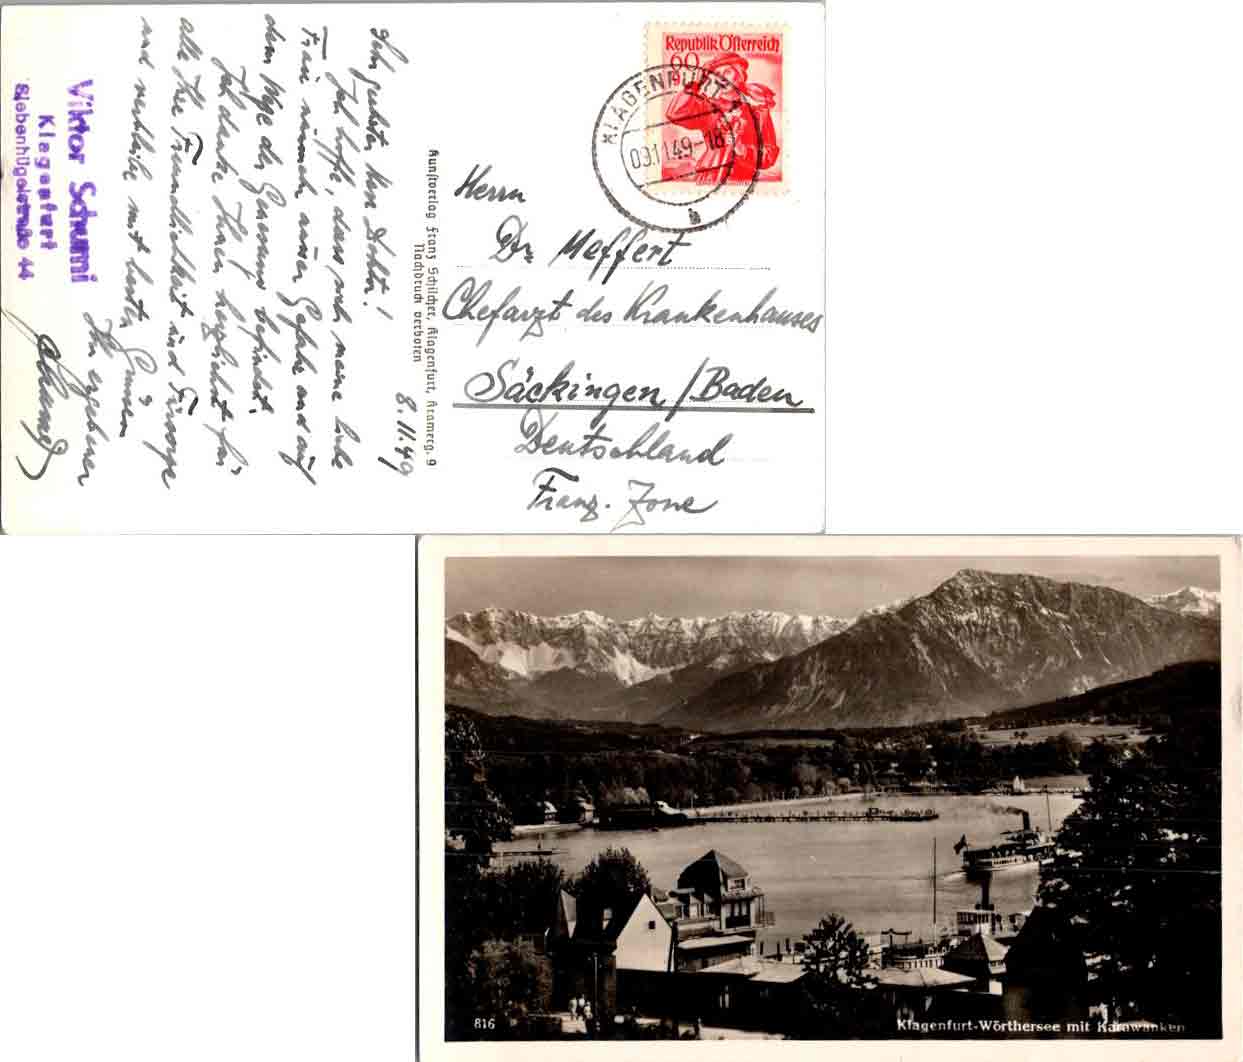 8.11.49
Sehr geehrter Herr Doktor!
Ich hoffe, dass sich meine liebe
Frau nunmehr ausser Gefahr und auf
dem Wege der Genesung befindet.
Ich danke Ihnen herzlichst für
alle Ihre Freundlichkeit und Fürsorge
und verbleibe mit besten Grüssen
Ihr ergebener
Viktor Schumi
Klagenfurt
Siebenhügelstraße 44
Kunstverlag Franz Schilcher, Klagenfurt, Kramerg. 9
Nachdruck verboten
Republik Österreich
60
KLAGENFURT 1
09.11.49-18
Herrn
Dr. Meffert
Chefarzt des Krankenhauses
Säckingen/Baden
Deutschland
Franz. Zone
816
Klagenfurt-Wörthersee mit Karawanken